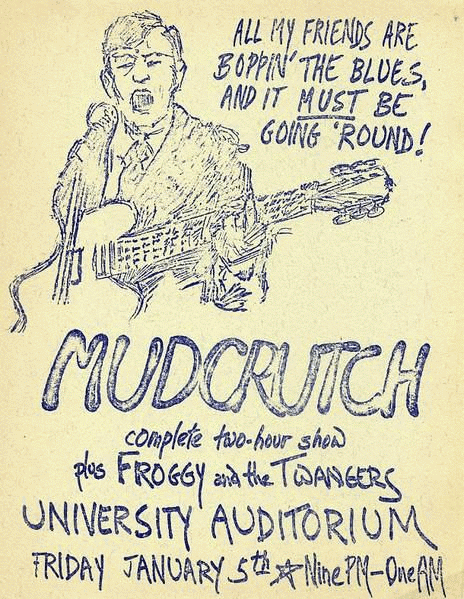 ALL MY FRIENDS ARE
BOPPIN' THE BLUES,
AND IT MUST BE
GOING 'ROUND!
MUDCRUTCH
complete two-hour show
plus FROGGY and the TWANGERS
UNIVERSITY AUDITORIUM
FRIDAY JANUARY 5th ☆ Nine PM-One AM